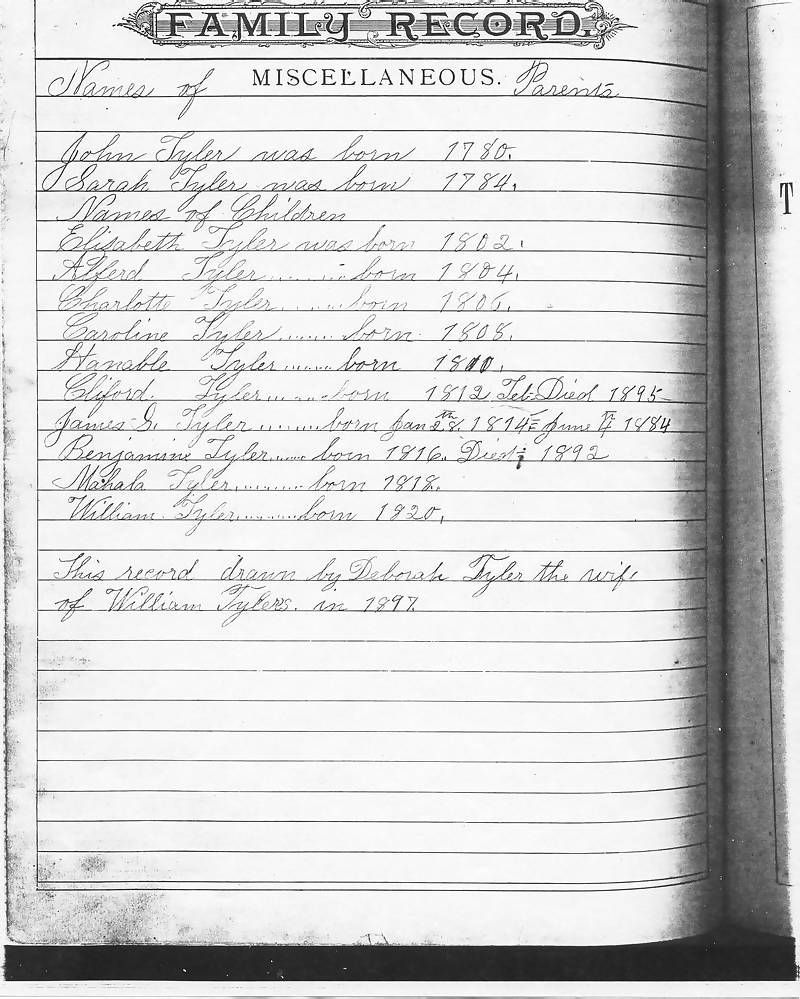 FAMILY RECORD.
MISCELLANEOUS.
Names of Parents
John Tyler was born 1780.
Sarah Tyler was born 1784.
Names of Children
Elisabeth Tyler was born 1802.
Alferd Tyler ........ born 1804.
Charlotte Tyler ........ born 1806.
Caroline Tyler ........ born 1808.
Hanable Tyler ...... born 1810.
Cliford. Tyler ........ born 1812, Died 1895
James G. Tyler ........ born Jan 28th 1814= June 4 1884
Benjamine Tyler ..... born 1816. Died: 1892
Mahala Tyler .......... born 1818.
William Tyler ......... born 1820.
This record drawn by Deborah Tyler the wife
of William Tylers. in 1897
T